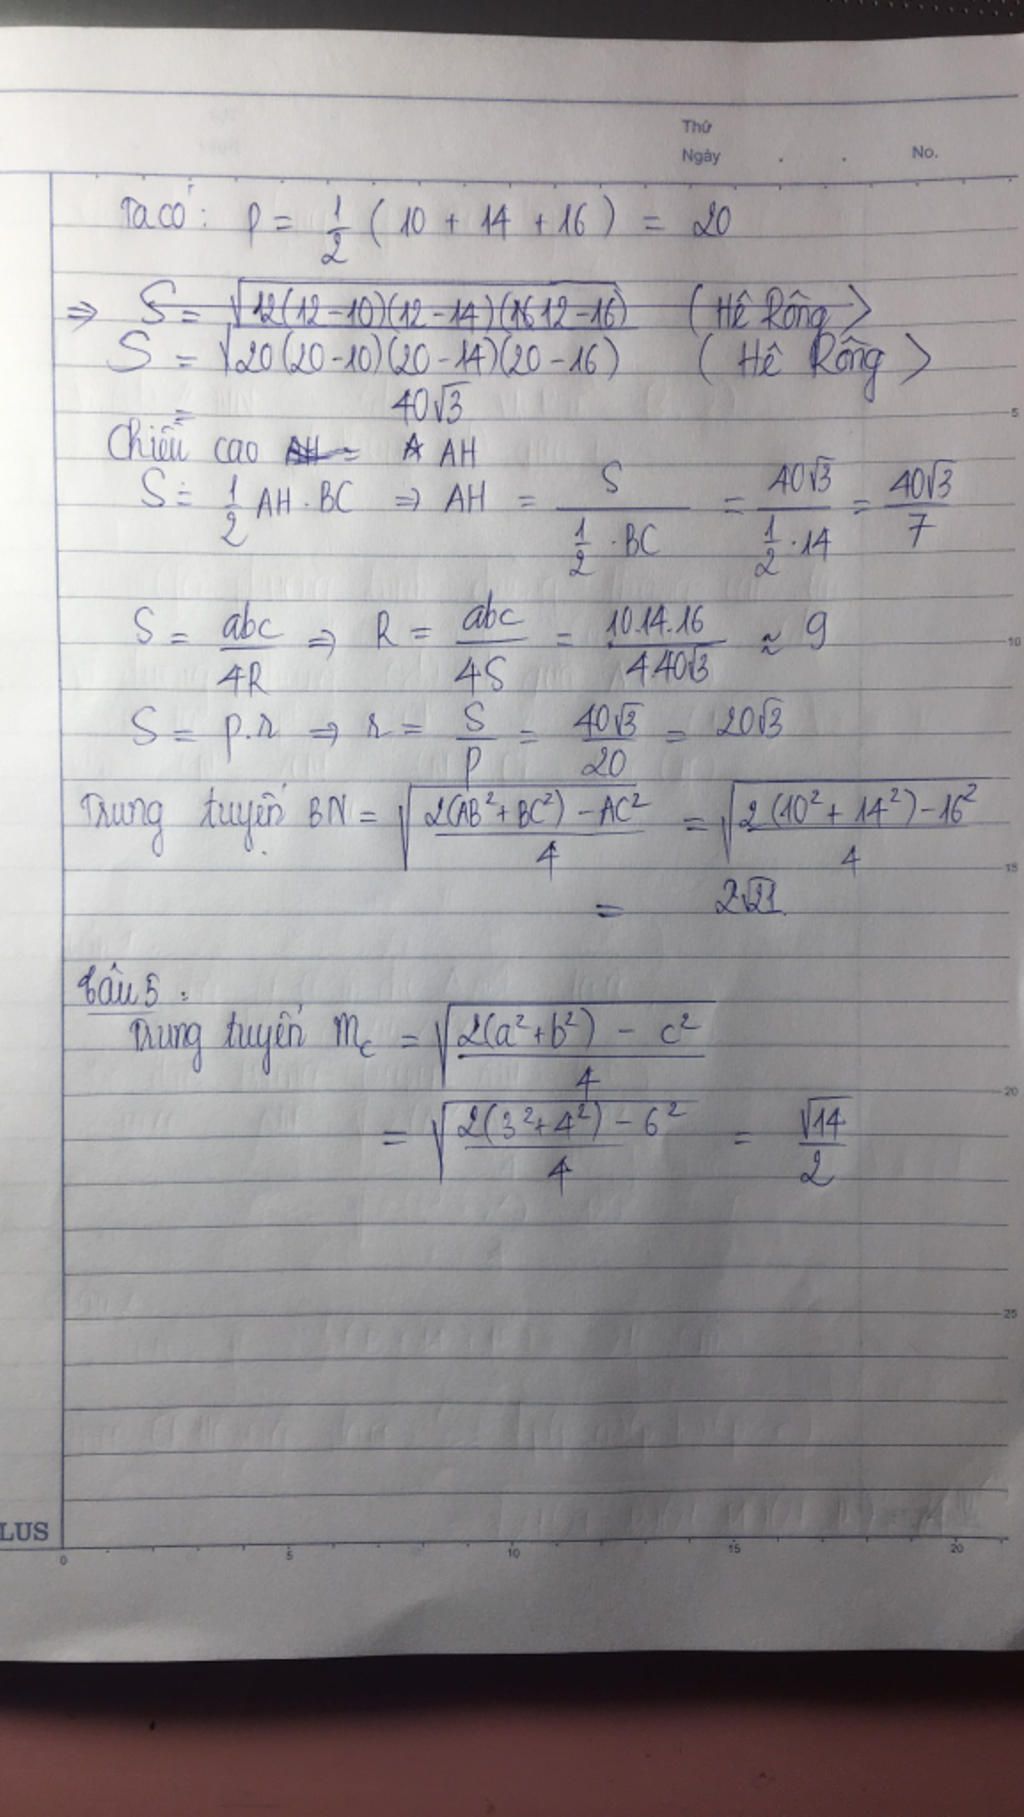 Thứ
Ngày . . No.
Ta có: P = 1/2 (10 + 14 + 16) = 20
⇒ S = √12(12-10)(12-14)(1612-16) (Hê Rông)
S = √20(20-10)(20-14)(20-16) (Hê Rông)
= 40√3
Chiều cao AH = A AH
S = 1/2 AH . BC ⇒ AH = S/(1/2 . BC) = 40√3/(1/2 . 14) = 40√3/7
S = abc/4R ⇒ R = abc/4S = 10.14.16/4.40√3 ≈ 9
S = p.r ⇒ r = S/P = 40√3/20 = 20√3
Trung tuyến BN = √(2(AB²+BC²) - AC²)/4 = √(2(10² + 14²) - 16²)/4
= 2√21
Câu 5 :
Trung tuyến mc = √(2(a²+b²) - c²)/4
= √(2(3²+4²) - 6²)/4 = √14/2
5
10
15
20
25
LUS
0 5 10 15 20